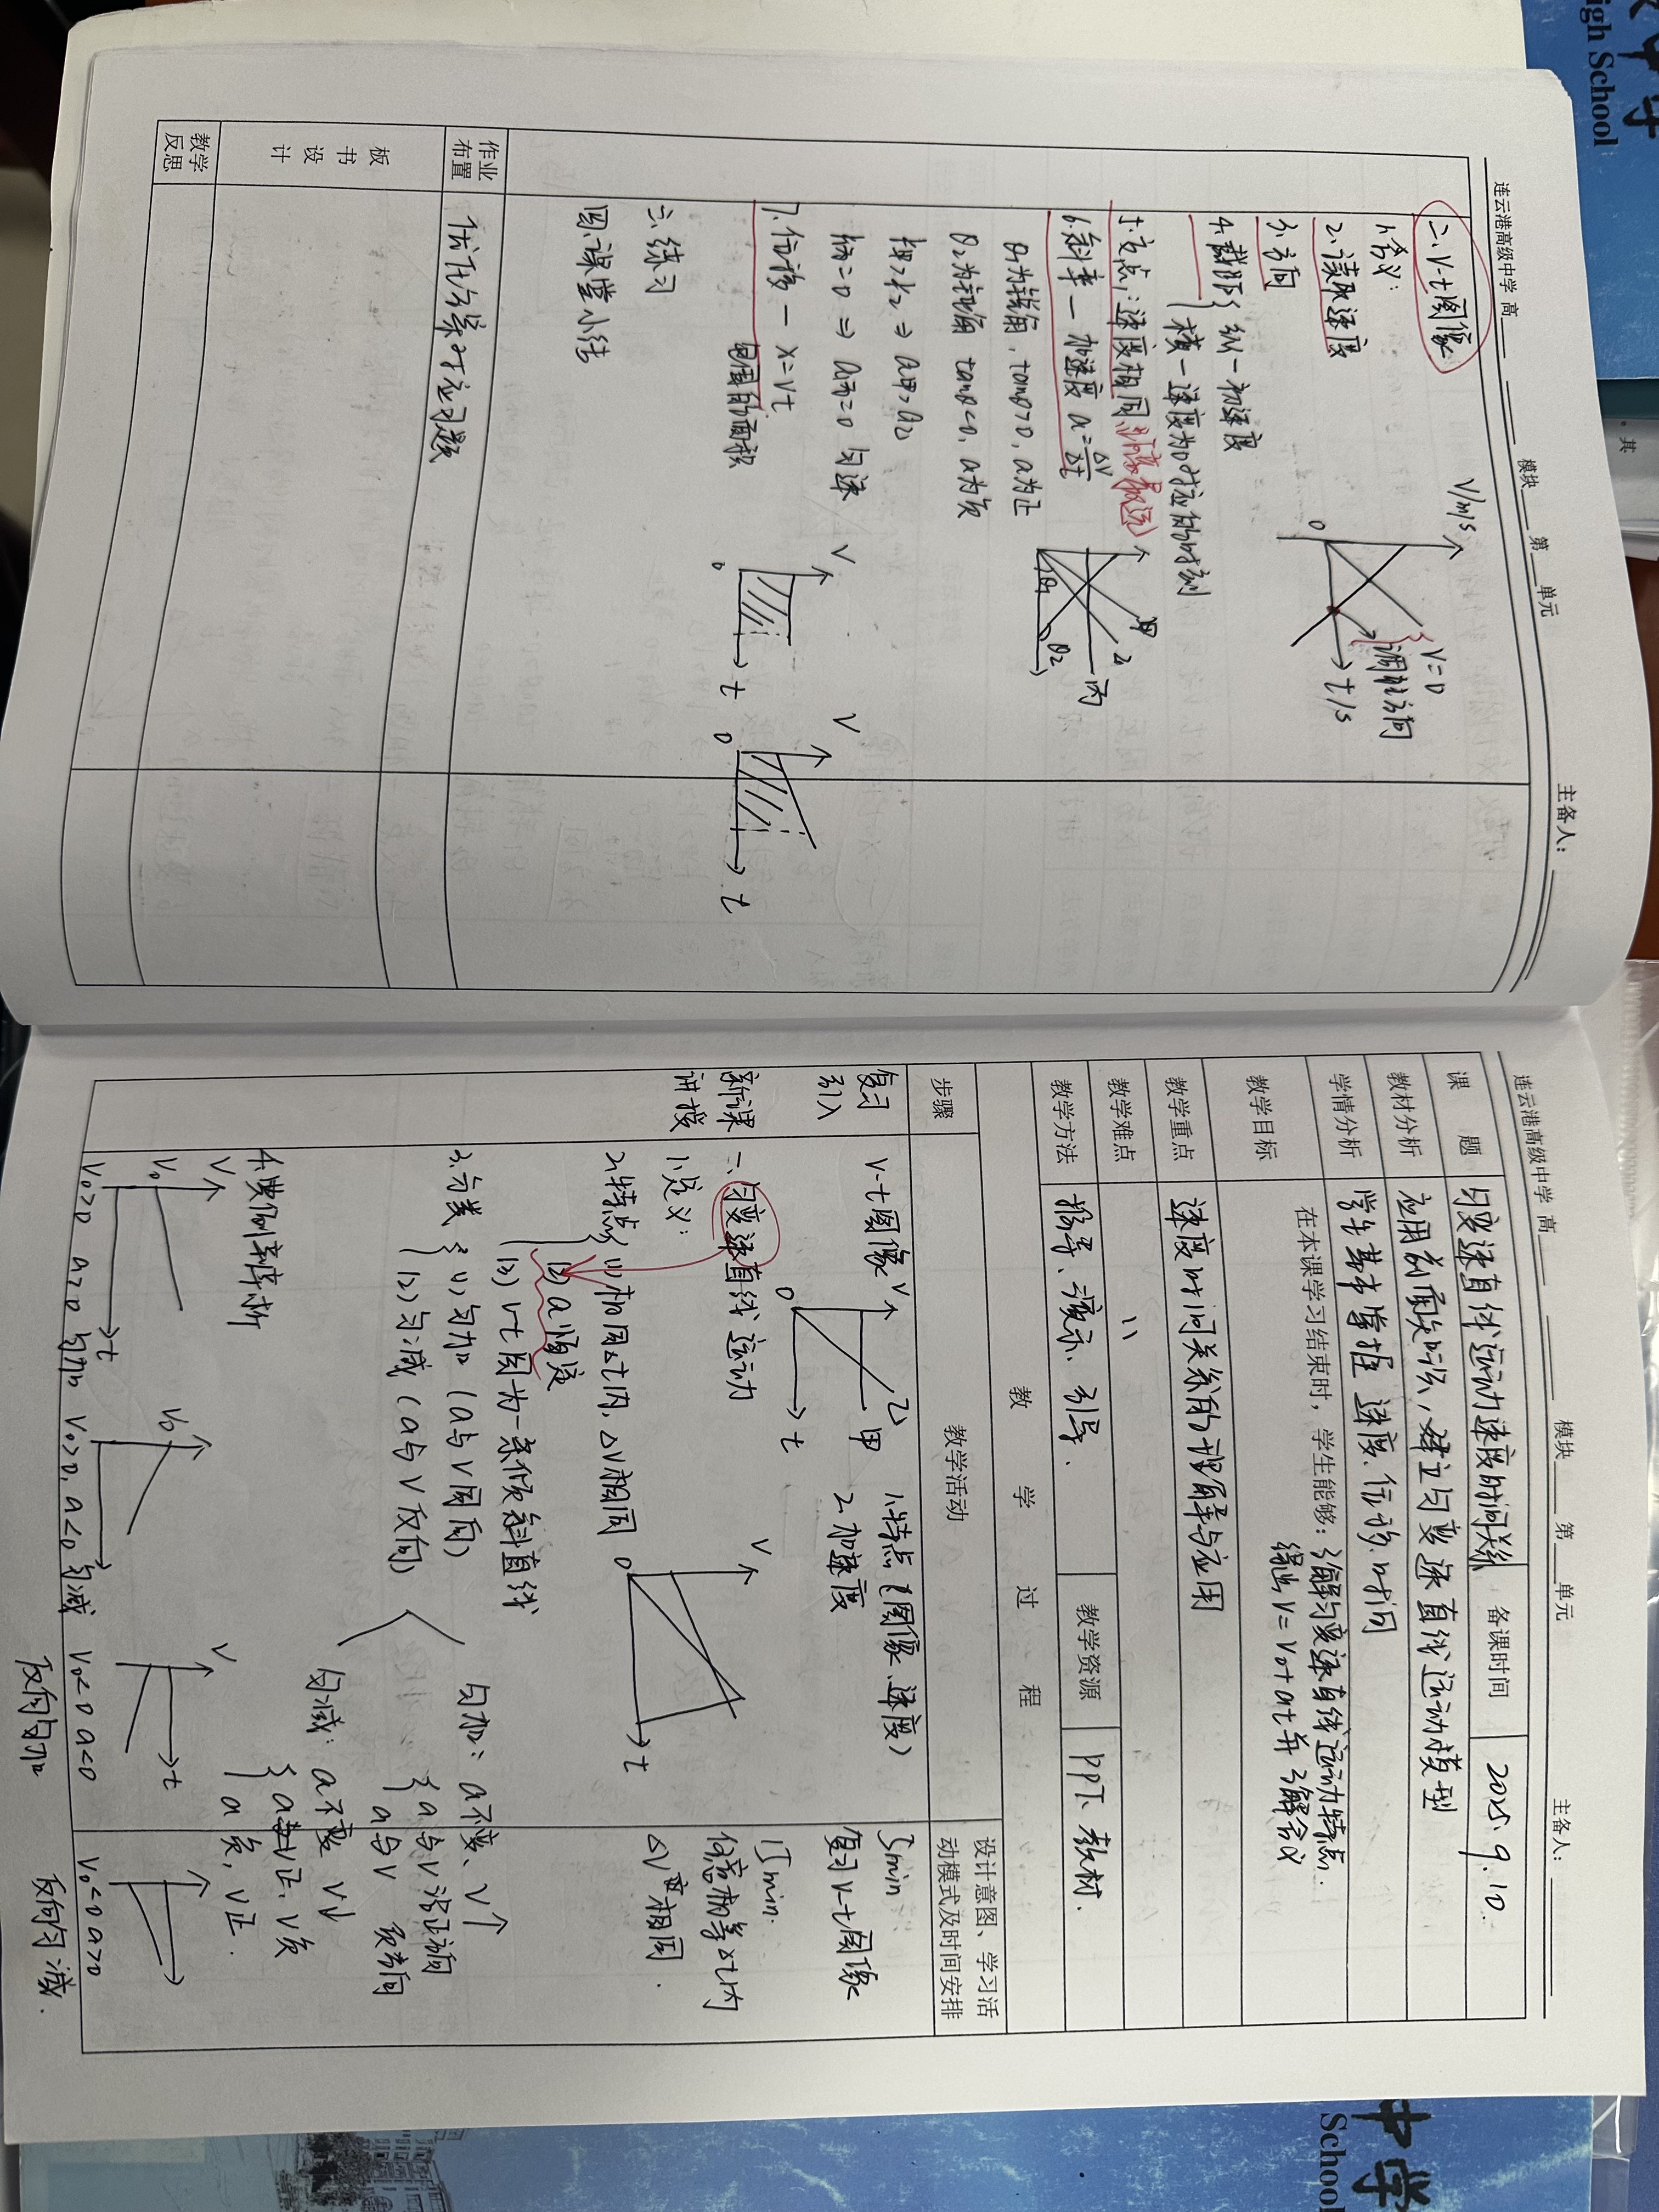 连云港高级中学 高 模块 第 单元 主备人：
二、V-t图像
1.含义：
2.读取速度
3.方向
4.截距 纵—初速度
横—速度为0对应的时刻
5.交点：速度相同
6.斜率—加速度 a=ΔV/Δt
θ1为锐角，tanθ>0，a为正
θ2为钝角 tanθ<0，a为负
k甲>k乙 ⇒ a甲>a乙
k丙=0 ⇒ a丙=0 匀速
7.位移— x=Vt
包围的面积
三、练习
四、课堂小结
V/m/s
0
V=0
调转方向
t/s
甲
乙
丙
θ1
θ2
V
0
t
V
0
t
作业布置
优化方案对应习题
板书设计
教学反思
连云港高级中学 高 模块 第 单元 主备人：
课题 匀变速直线运动速度时间关系 备课时间 2025.9.10.
教材分析 应用前面知识，建立匀变速直线运动模型
学情分析 学生基本掌握速度、位移、时间
教学目标 在本课学习结束时，学生能够：了解匀变速直线运动特点.
得出V=V0+at并了解含义
教学重点 速度时间关系的理解与应用
教学难点 11
教学方法 推导、演示、引导. 教学资源 PPT、教材.
教学过程
步骤 教学活动 设计意图、学习活动模式及时间安排
复习引入
V-t图像
V
0
乙
甲
t
1.特点（图像、速度）
2.加速度
5min
复习V-t图像
新课讲授
一、匀变速直线运动
1.定义：
2.特点 (1)相同Δt内，ΔV相同
(2) a恒定
(3) V-t图为一条倾斜直线
V
0
t
15min.
任意相等Δt内
ΔV相同.
3.分类 (1)匀加（a与V同向）
(2)匀减（a与V反向）
匀加：a不变、V↑
a与V沿正方向
a与V 负方向
匀减：a不变 V↓
a正、V负
a负，V正.
4.典例剖析
V
V0
t
V0>0 a>0 匀加
V0
V0>0，a<0 匀减
V
t
V0<0 a<0
反向匀加
V0<0 a>0
反向匀减.
igh School
中学
School